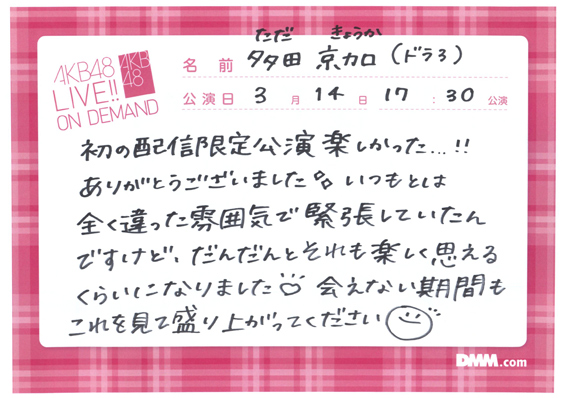 ただ きょうか
名前 多田 京加 (ドラ3)
AKB48
LIVE!!
ON DEMAND
AKB
48
公演日 3月14日 17:30 公演
初の配信限定公演 楽しかった…!!
ありがとうございました いつもとは
全く違った雰囲気で緊張していたん
ですけど、だんだんとそれも楽しく思える
くらいになりました 会えない期間も
これを見て盛り上がってください
DMM.com